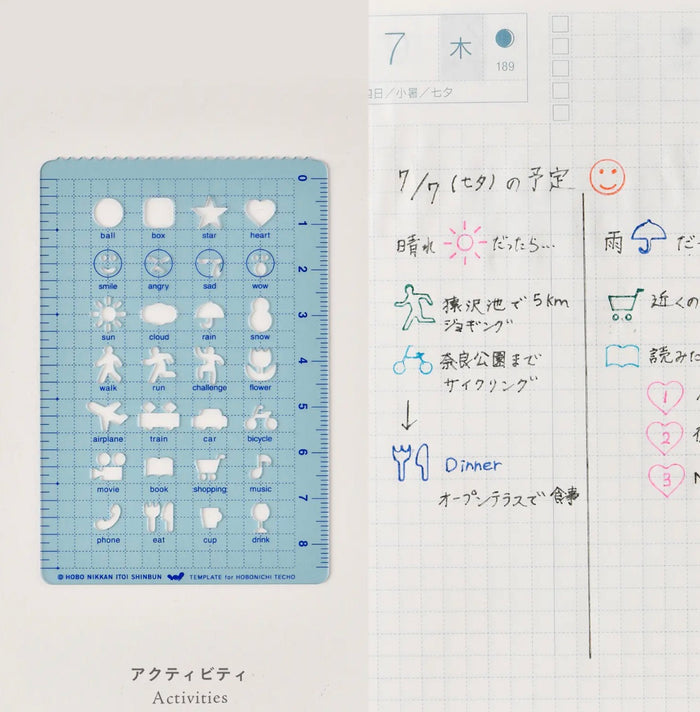 0
1
2
3
4
5
6
7
8
ball box star heart
smile angry sad wow
sun cloud rain snow
walk run challenge flower
airplane train car bicycle
movie book shopping music
phone eat cup drink
© HOBO NIKKAN ITOI SHINBUN TEMPLATE for HOBONICHI TECHO
アクティビティ
Activities
7 木 189
日／小暑／七夕
7/7 (七夕)の予定
晴れ だったら...
猿沢池で 5km
ジョギング
奈良公園まで
サイクリング
Dinner
オープンテラスで 食事
雨 だ
近くの
読みた
1
2
3